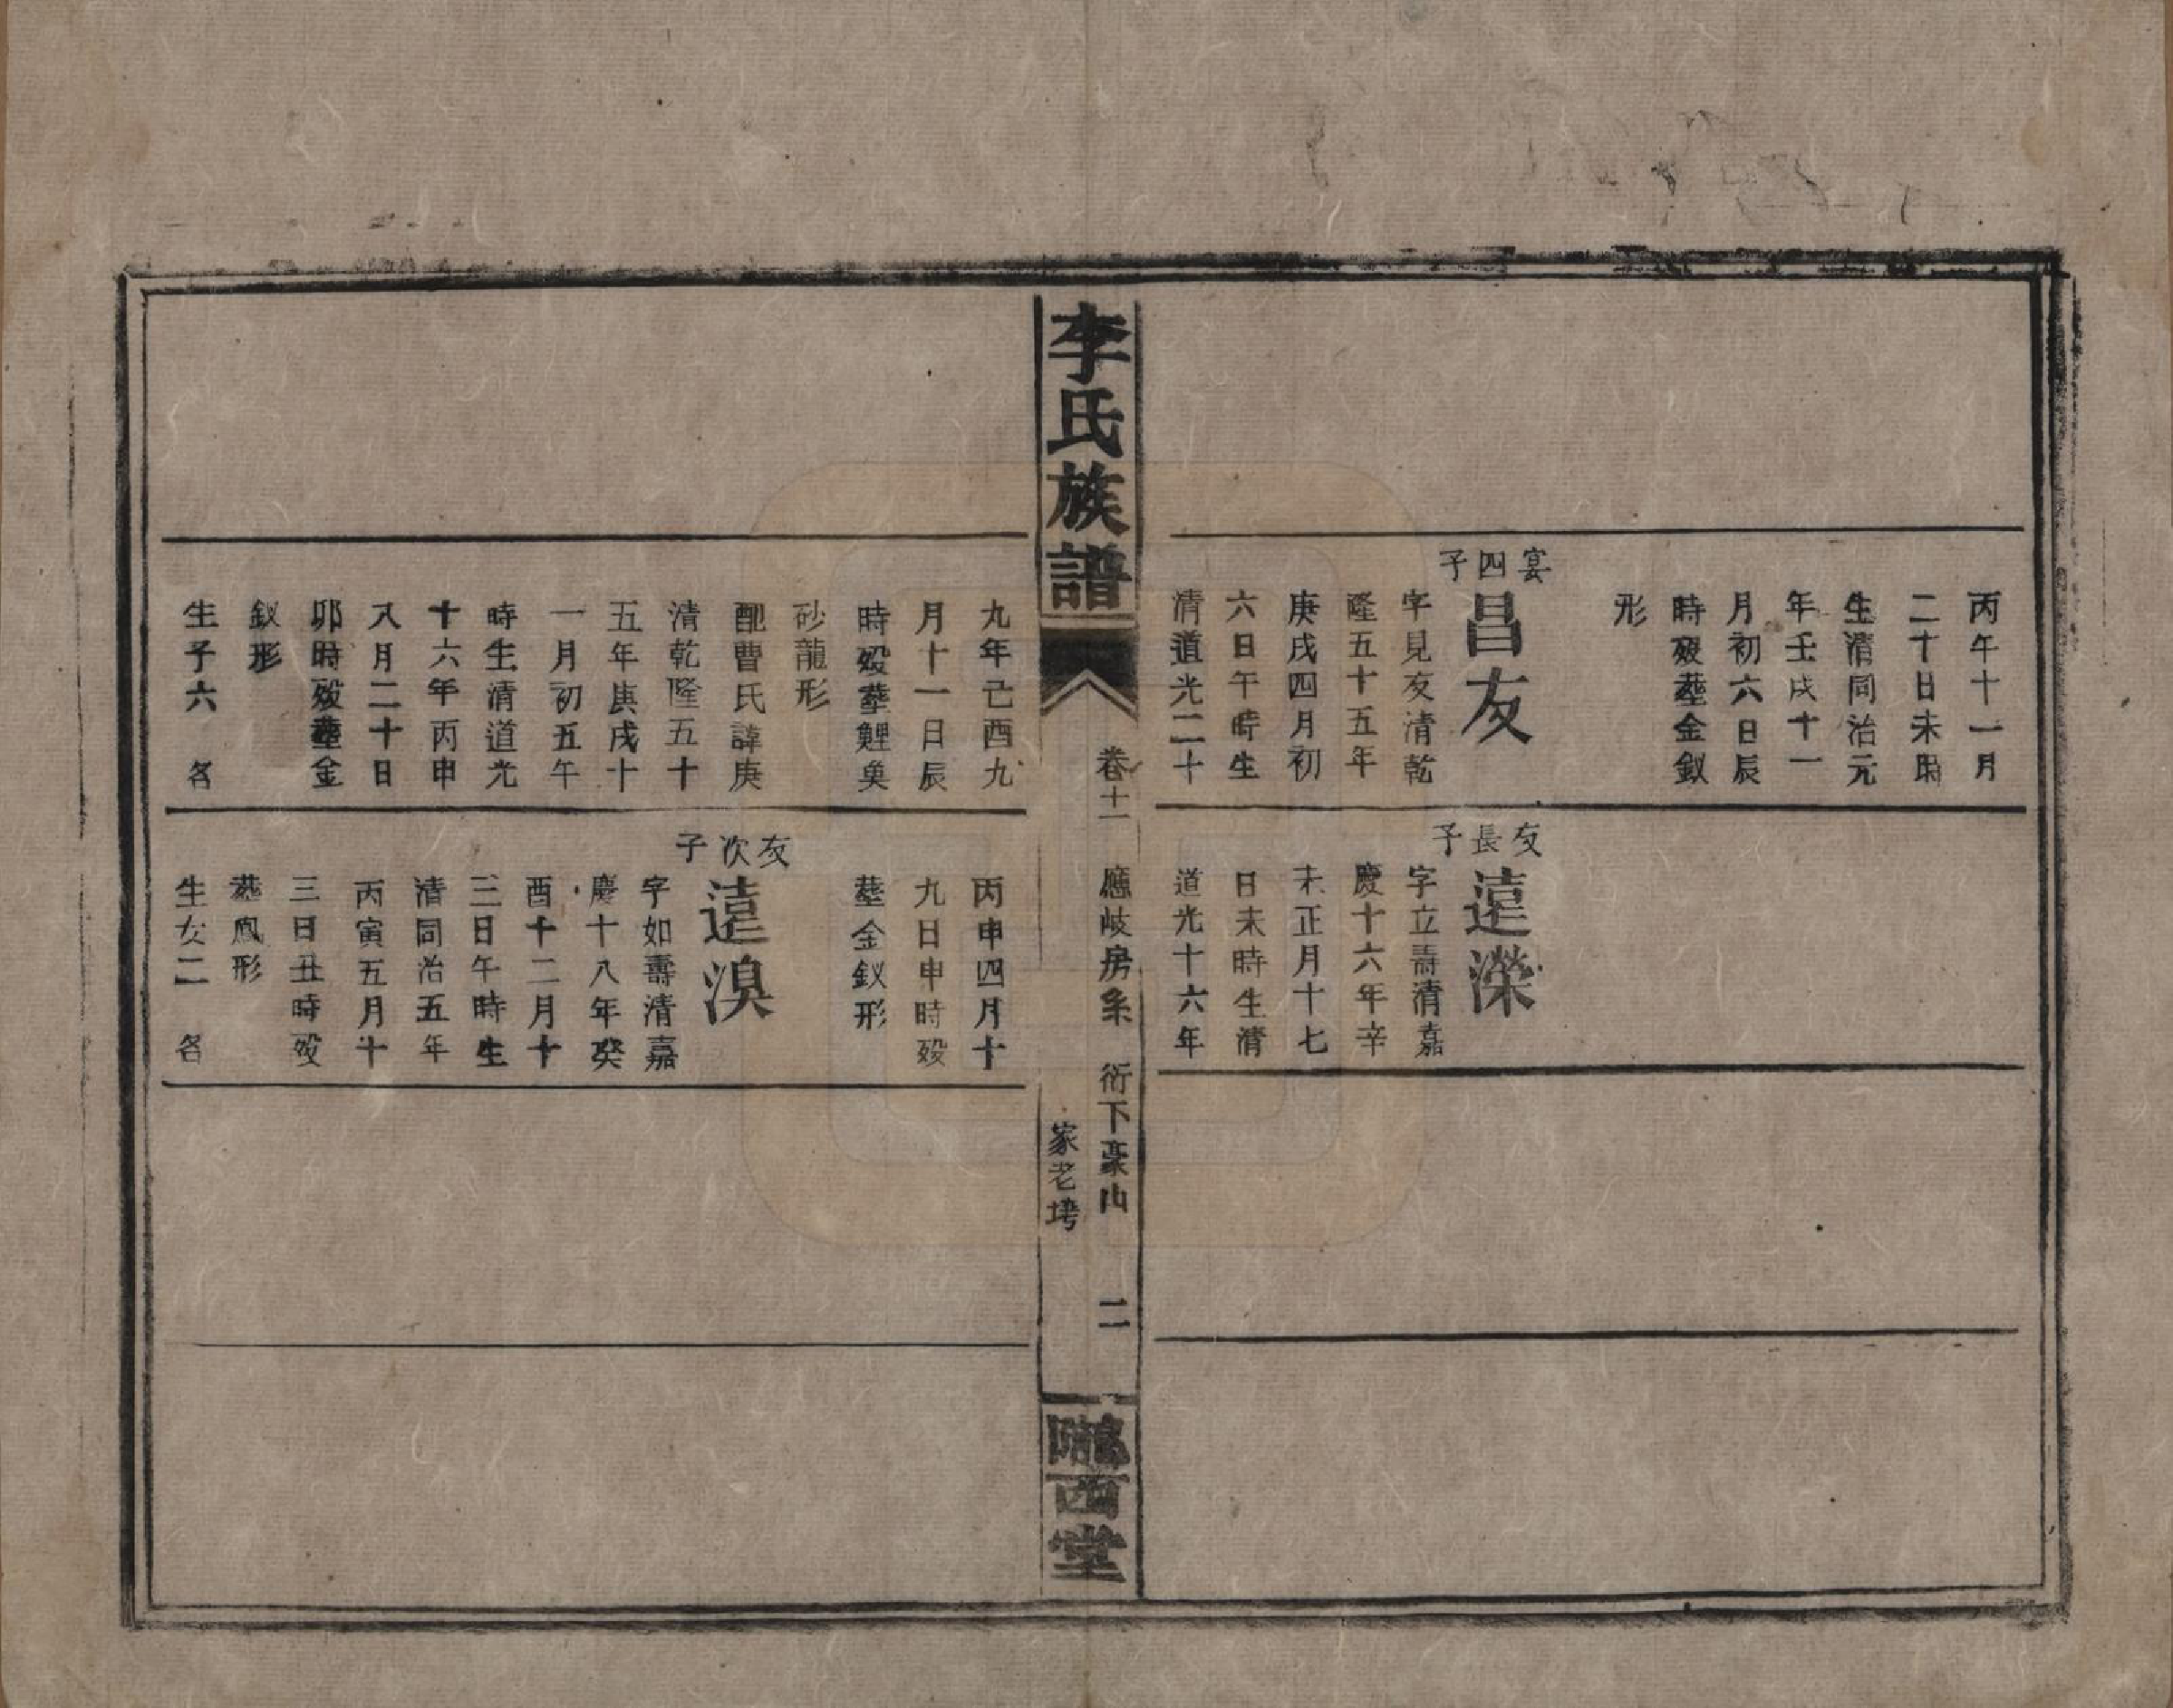 丙午十一月
二十日未時
生清同治元
年壬戌十一
月初六日辰
時歿塟金釵
形
宴四子
昌友
字見友清乾
隆五十五年
庚戌四月初
六日午時生
清道光二十
友長子
遠濚
字立壽清嘉
慶十六年辛
未正月十七
日未時生清
道光十六年
李氏族譜
卷十一 應岐房系 衍下豪山 二
家老塆
隴西堂
九年己酉九
月十一日辰
時歿塟鯉奐
砂龍形
配曹氏諱庚
清乾隆五十
五年庚戌十
一月初五午
時生清道光
十六年丙申
八月二十日
卯時歿塟金
釵形
生子六 名
丙申四月十
九日申時歿
塟金釵形
友次子
遠湨
字如壽清嘉
慶十八年癸
酉十二月十
三日午時生
清同治五年
丙寅五月十
三日丑時歿
塟鳳形
生女二 名